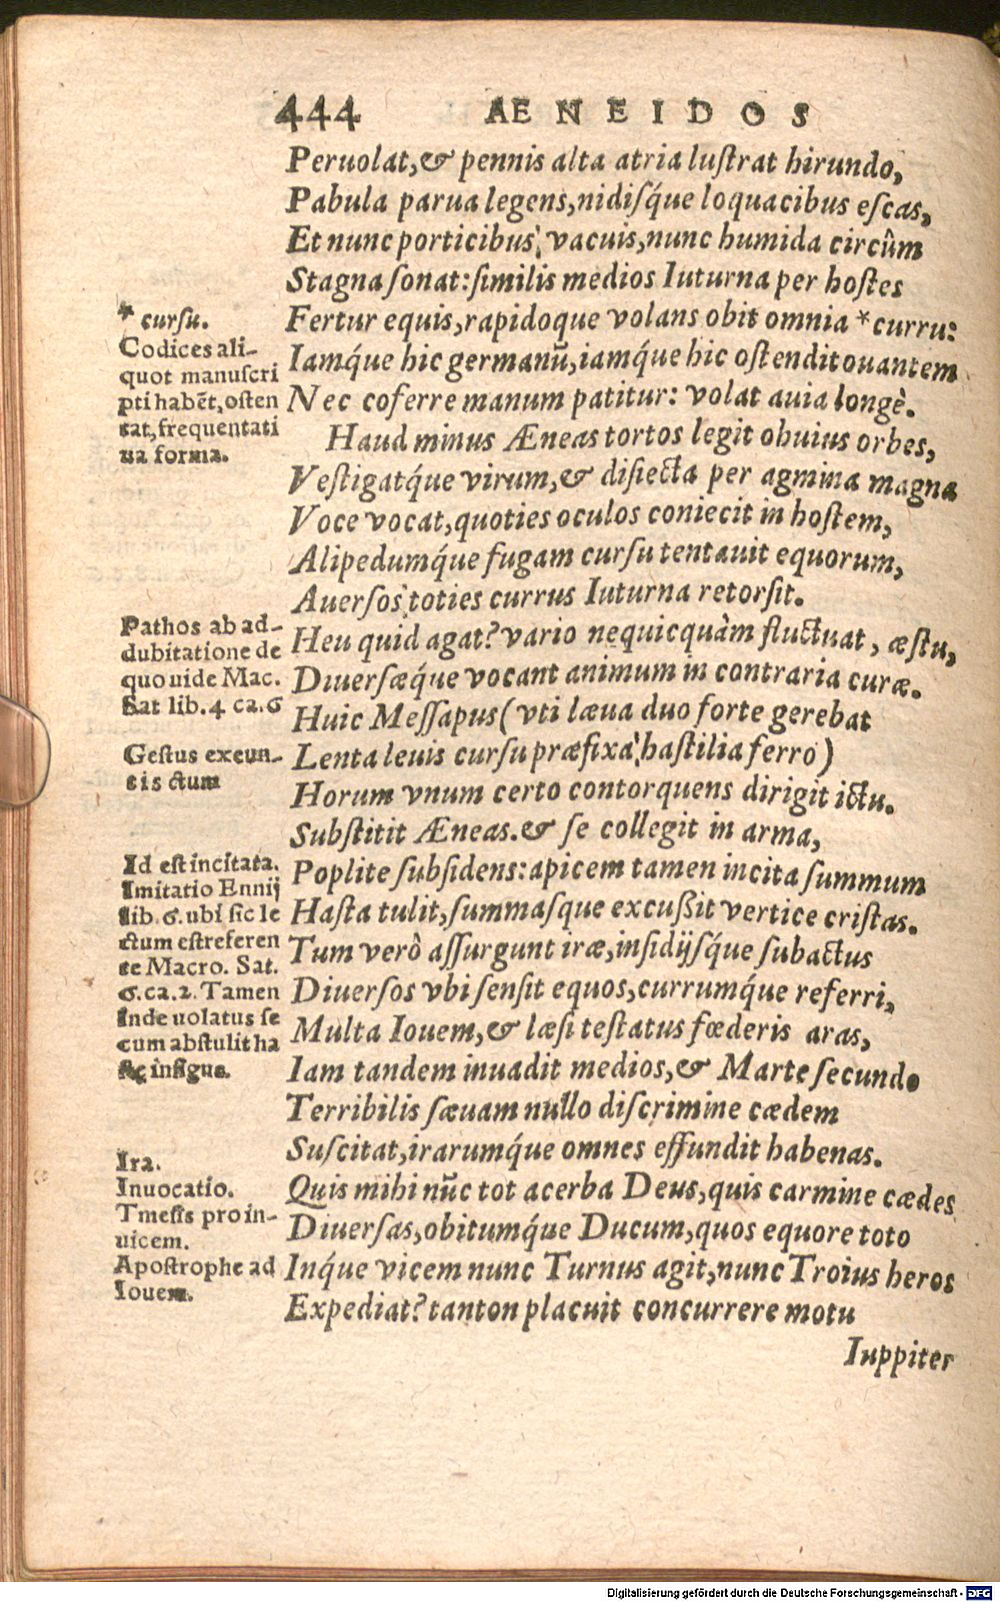 444 AENEIDOS
Peruolat,& pennis alta atria lustrat hirundo,
Pabula parua legens,nidisq́ue loquacibus escas,
Et nunc porticibus, vacuis,nunc humida circûm
Stagna sonat:similis medios Iuturna per hostes
Fertur equis,rapidoque volans obit omnia *curru:
Iamq́ue hic germanū,iamq́ue hic ostendit ouantem
Nec coferre manum patitur: volat auia longè.
Haud minus Æneas tortos legit obuius orbes,
Vestigatq́ue virum,& disiecta per agmina magna
Voce vocat,quoties oculos coniecit in hostem,
Alipedumq́ue fugam cursu tentauit equorum,
Auersos toties currus Iuturna retorsit.
Heu quid agat? vario nequicquàm fluctuat, æstu,
Diuersæq́ue vocant animum in contraria curæ.
Huic Messapus (vti læua duo forte gerebat
Lenta leuis cursu præfixa, hastilia ferro)
Horum vnum certo contorquens dirigit ictu.
Substitit Æneas.& se collegit in arma,
Poplite subsidens:apicem tamen incita summum
Hasta tulit,summasque excußit vertice cristas.
Tum verò assurgunt iræ,insidijsq́ue subactus
Diuersos vbi sensit equos,currumq́ue referri,
Multa Iouem,& læsi testatus fœderis aras,
Iam tandem inuadit medios,& Marte secundo
Terribilis sæuam nullo discrimine cædem
Suscitat,irarumq́ue omnes effundit habenas.
Quis mihi nūc tot acerba Deus,quis carmine cædes
Diuersas,obitumq́ue Ducum,quos equore toto
Inq́ue vicem nunc Turnus agit,nunc Troius heros
Expediat? tanton placuit concurrere motu
Iuppiter
* cursu.
Codices ali-
quot manuscri
pti habēt,osten
tat,frequentati
ua forma.
Pathos ab ad-
dubitatione de
quo uide Mac.
Sat lib.4 ca.6
Gestus exeun-
tis ctum
Id est incitata.
Imitatio Ennij
lib.6.ubi sic le
ctum est referen
te Macro. Sat.
6.ca.2.Tamen
inde uolatus se
cum abstulit ha
sta insigne.
Ira.
Inuocatio.
Tmesis pro in-
uicem.
Apostrophe ad
Iouem.
Digitalisierung gefördert durch die Deutsche Forschungsgemeinschaft - DFG